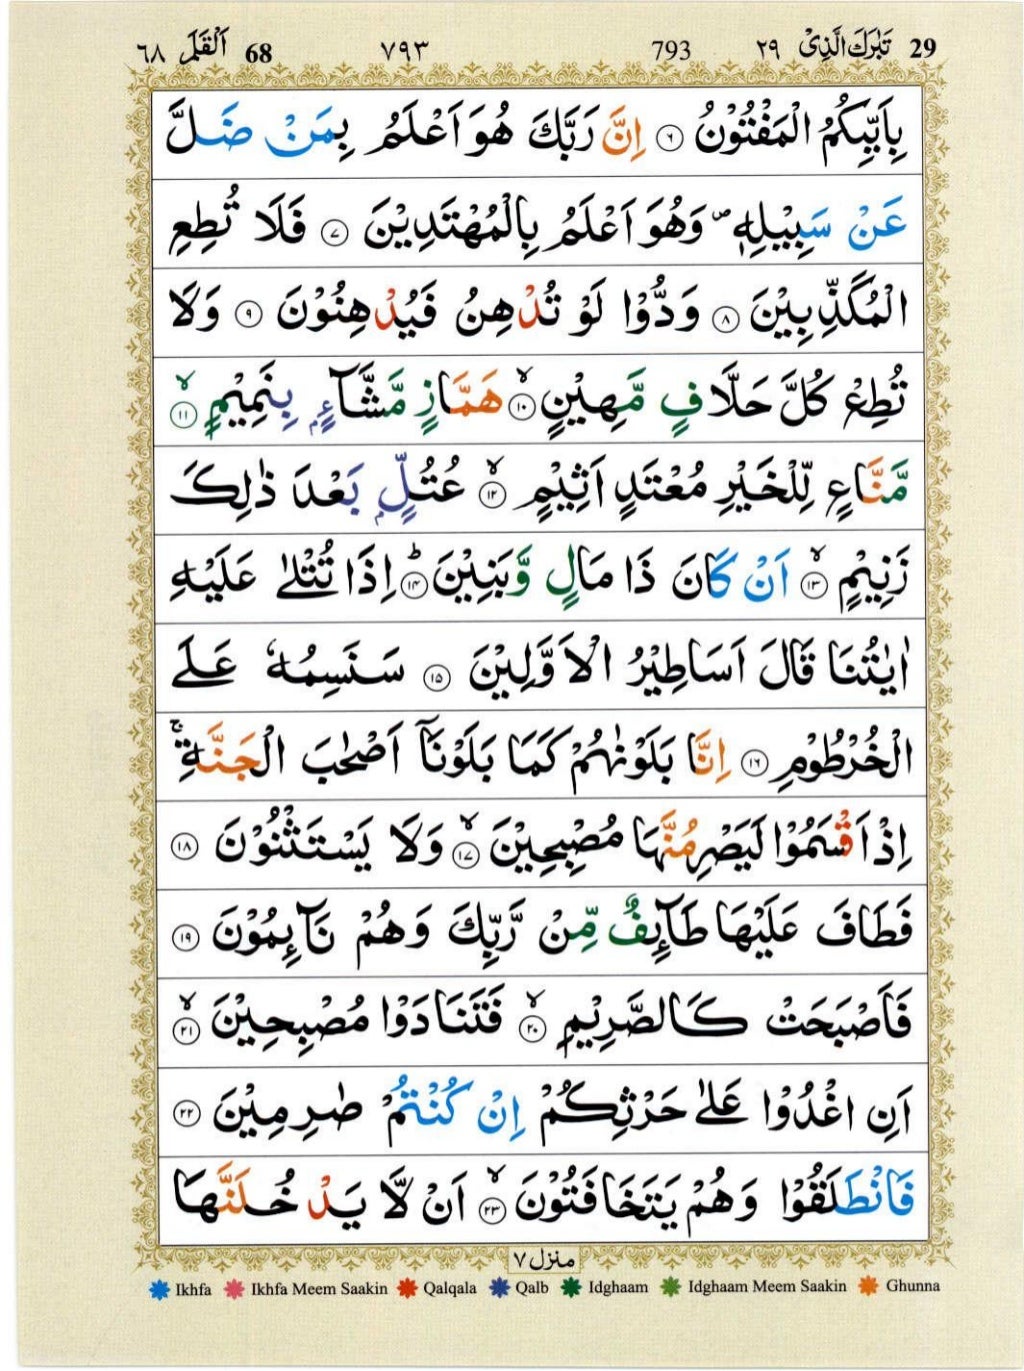 29 تَبٰرَكَ الَّذِىْ ٢٩ 793 ٧٩٣ 68 اَلْقَلَمْ ٦٨
بِاَيِّىكُمُ الْمَفْتُوْنُ ۝٦ اِنَّ رَبَّكَ هُوَ اَعْلَمُ بِمَنْ ضَلَّ
عَنْ سَبِيْلِهٖ ۪ وَهُوَ اَعْلَمُ بِالْمُهْتَدِيْنَ ۝٧ فَلَا تُطِعِ
الْمُكَذِّبِيْنَ ۝٨ وَدُّوْا لَوْ تُدْهِنُ فَيُدْهِنُوْنَ ۝٩ وَلَا
تُطِعْ كُلَّ حَلَّافٍ مَّهِيْنٍ ۙ۝١٠ هَمَّازٍ مَّشَّآءٍۭ بِنَمِيْمٍ ۙ۝١١
مَّنَّاعٍ لِّلْخَيْرِ مُعْتَدٍ اَثِيْمٍ ۙ۝١٢ عُتُلٍّۭ بَعْدَ ذٰلِكَ
زَنِيْمٍ ۙ۝١٣ اَنْ كَانَ ذَا مَالٍ وَّبَنِيْنَ ؕ۝١٤ اِذَا تُتْلٰى عَلَيْهِ
اٰيٰتُنَا قَالَ اَسَاطِيْرُ الْاَوَّلِيْنَ ۝١٥ سَنَسِمُهٗ عَلَى
الْخُرْطُوْمِ ۝١٦ اِنَّا بَلَوْنٰهُمْ كَمَا بَلَوْنَآ اَصْحٰبَ الْجَنَّةِ ۚ
اِذْ اَقْسَمُوْا لَيَصْرِمُنَّهَا مُصْبِحِيْنَ ۙ۝١٧ وَلَا يَسْتَثْنُوْنَ ۝١٨
فَطَافَ عَلَيْهَا طَآئِفٌ مِّنْ رَّبِّكَ وَهُمْ نَآئِمُوْنَ ۝١٩
فَاَصْبَحَتْ كَالصَّرِيْمِ ۙ۝٢٠ فَتَنَادَوْا مُصْبِحِيْنَ ۙ۝٢١
اَنِ اغْدُوْا عَلٰى حَرْثِكُمْ اِنْ كُنْتُمْ صٰرِمِيْنَ ۝٢٢
فَانْطَلَقُوْا وَهُمْ يَتَخَافَتُوْنَ ۙ۝٢٣ اَنْ لَّا يَدْخُلَنَّهَا
منزل ٧
Ikhfa Ikhfa Meem Saakin Qalqala Qalb Idghaam Idghaam Meem Saakin Ghunna